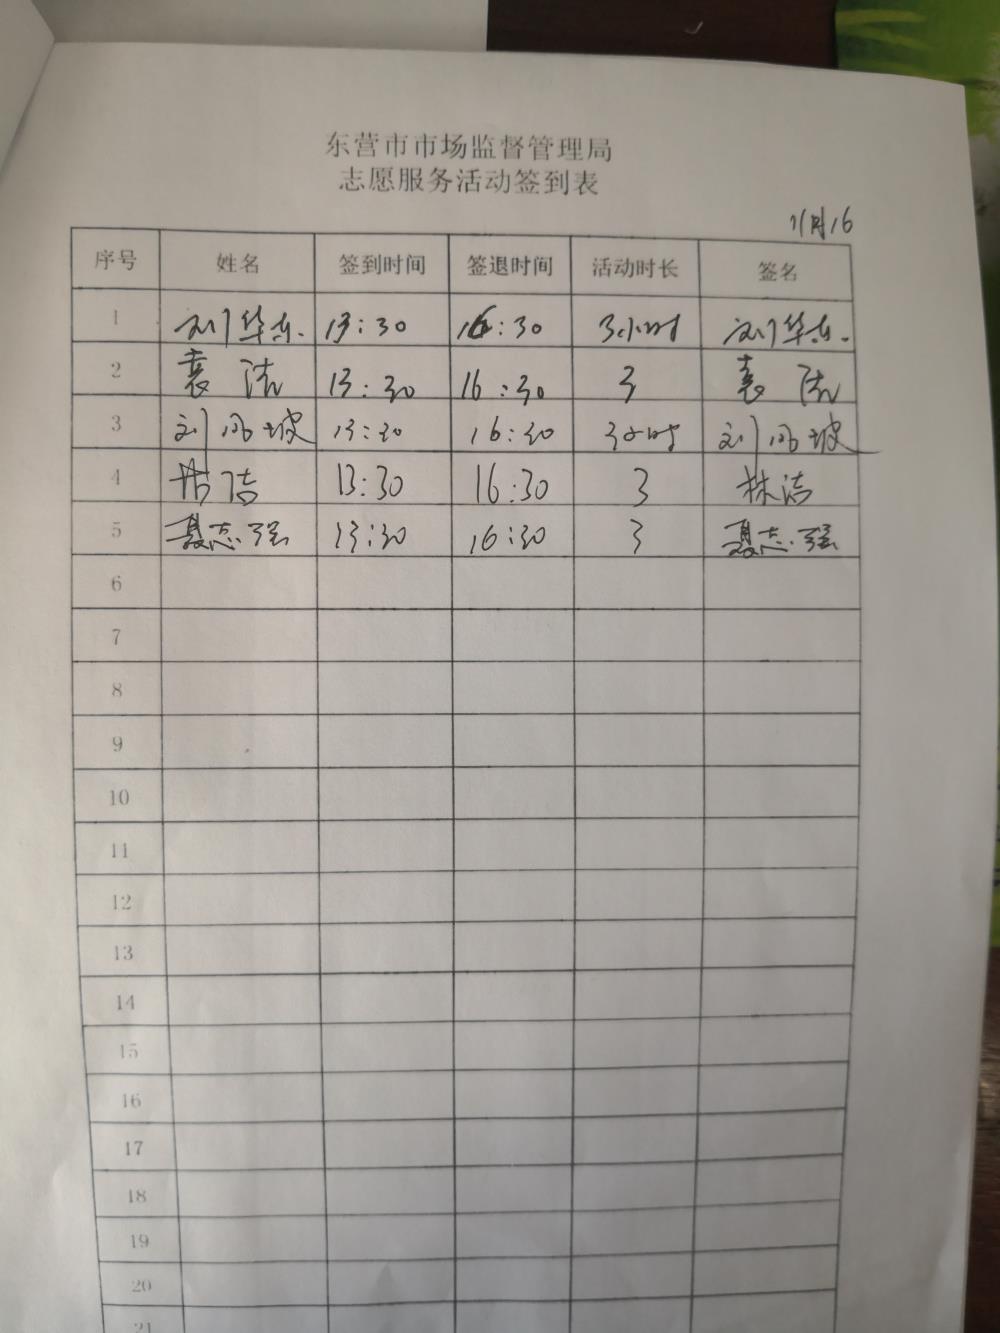 东营市市场监督管理局
志愿服务活动签到表
11月16
序号 姓名 签到时间 签退时间 活动时长 签名
1 刘华东. 13:30 16:30 3小时 刘华东.
2 袁洁 13:30 16:30 3 袁洁
3 刘风坡 13:30 16:30 3小时 刘风坡
4 林洁 13:30 16:30 3 林洁
5 聂志强 13:30 16:30 3 聂志强
6
7
8
9
10
11
12
13
14
15
16
17
18
19
20
21